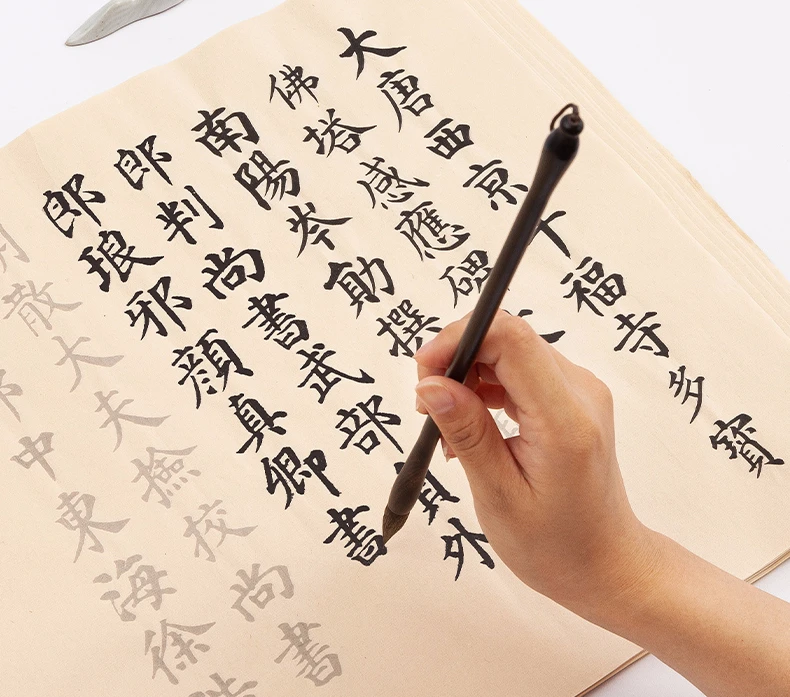 大唐西京千福寺多寶
佛塔感應碑
南陽岑勛撰
郎判尚書武部員外
郎琅邪顏真卿書
散大夫撿校尚書
中東海徐